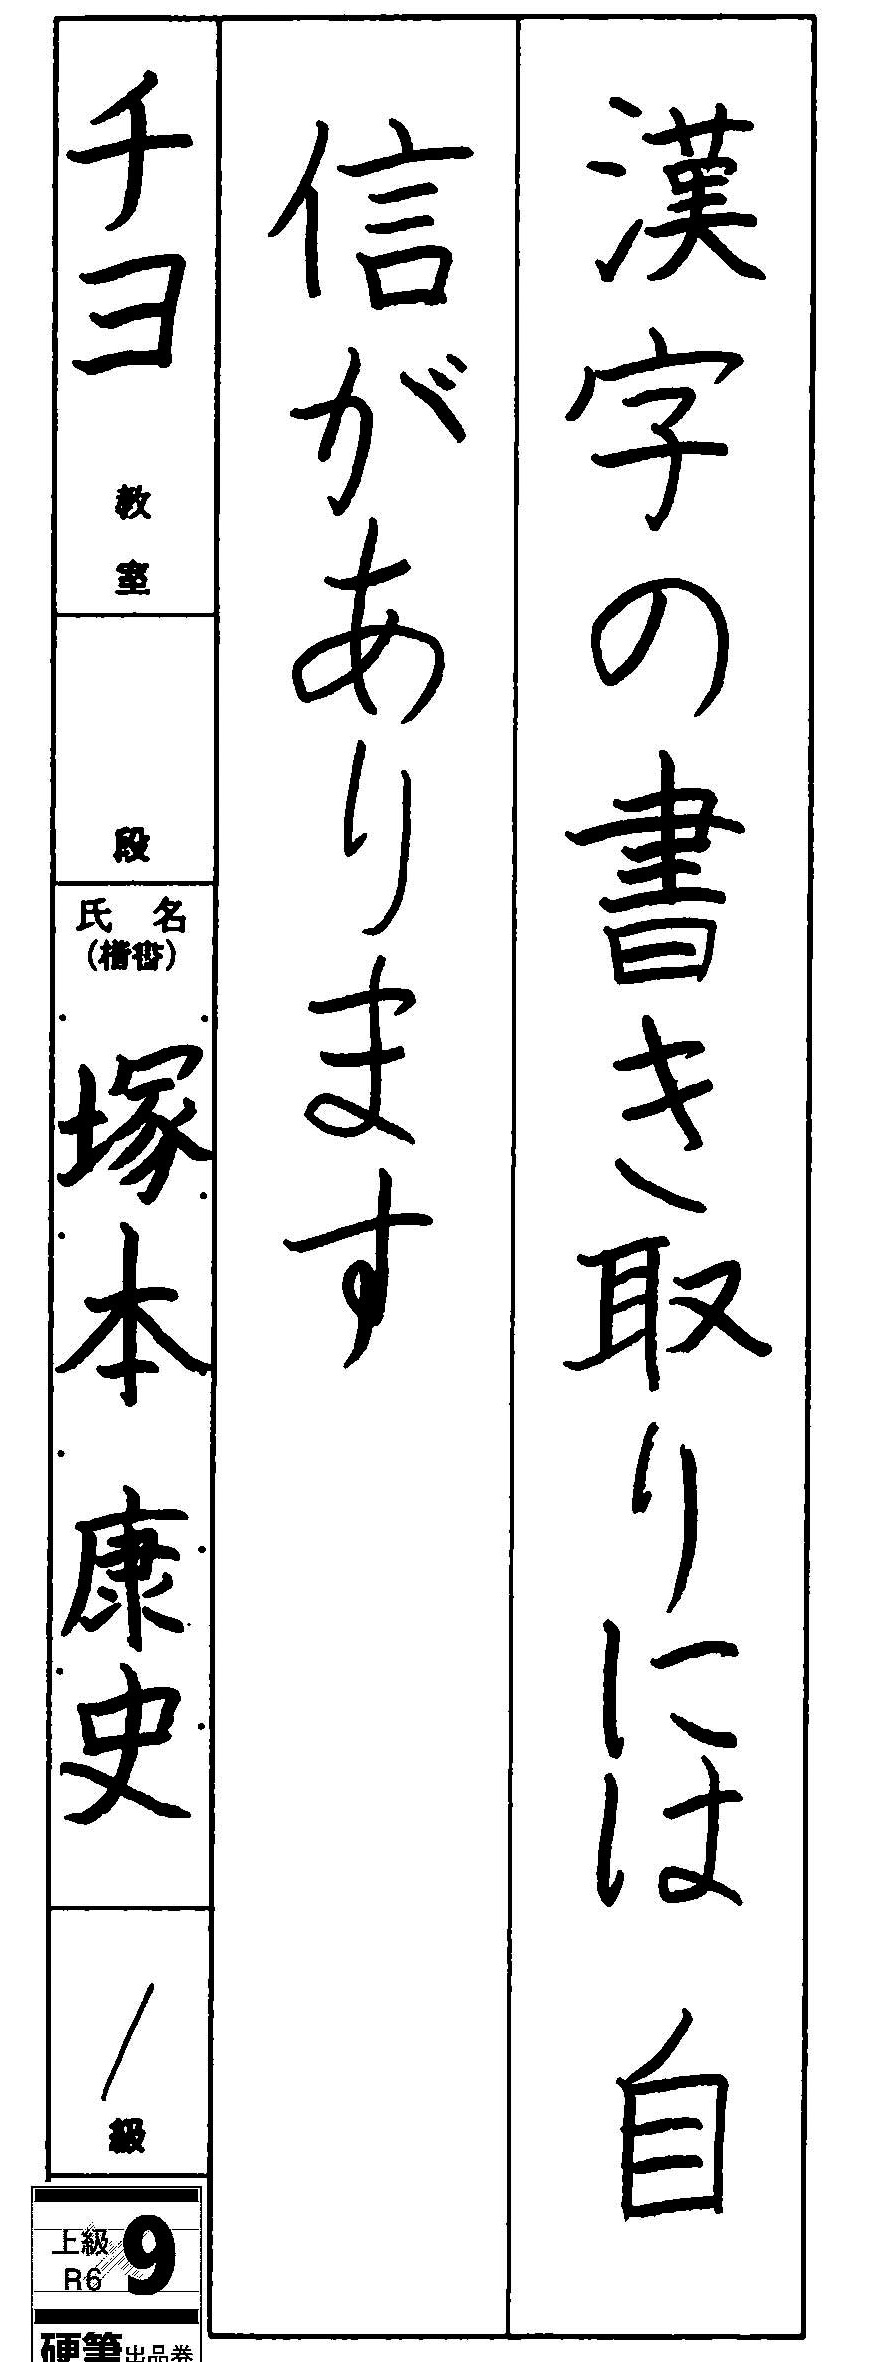 漢字の書き取りには自
信があります
チヨ 教室
段
氏名
(楷書)
塚本康史
/ 級
上級 9
R6
硬筆出品券